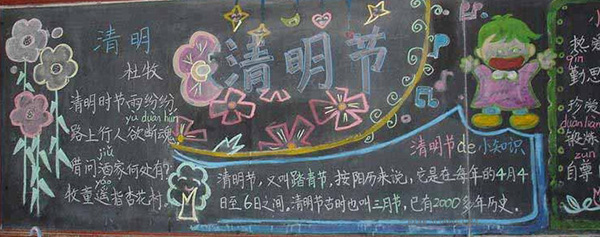 清明
杜牧
清明时节雨纷纷,
yu duàn hún
路上行人欲断魂。
jiǔ
借问酒家何处有?
牧童遥指杏花村。
清明节
清明节de小知识
清明节,又叫踏青节,按阳历来说,它是在每年的4月4
日至6日之间,清明节古时也叫三月节,已有2000多年历史。
qín
勤思
珍爱
duàn liàn
锻炼
zūn
自尊